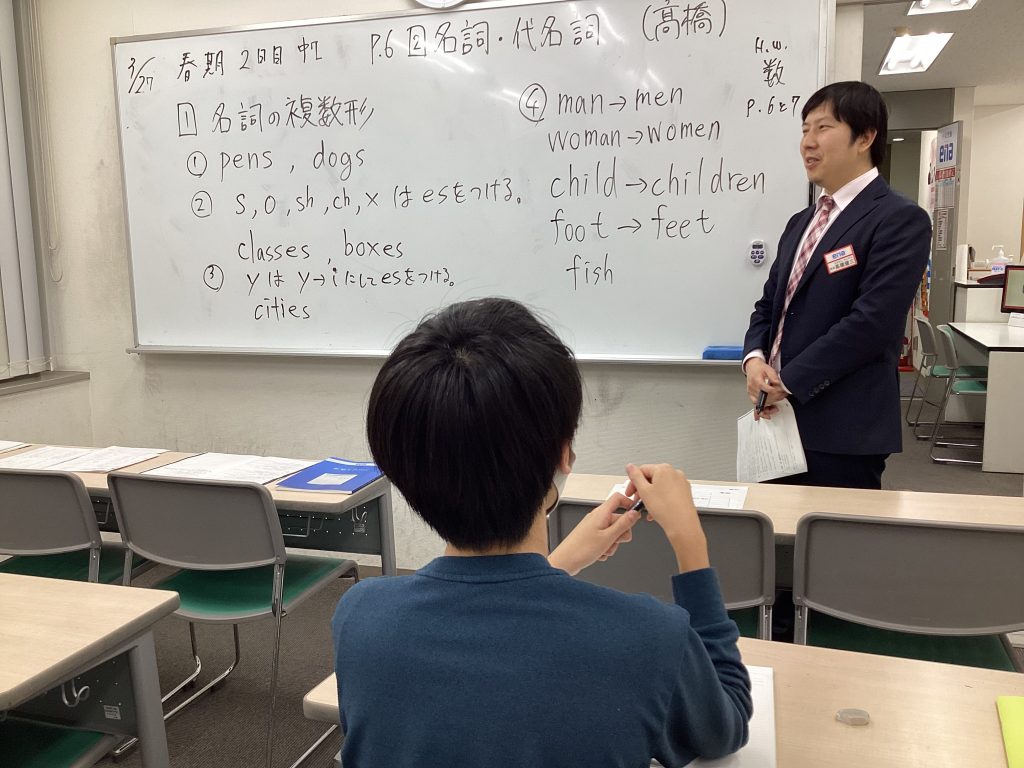 3/27 春期 2日目 中1 P.6 2 名詞・代名詞 (髙橋)
H.w.
数
P.6と7
1 名詞の複数形
① pens , dogs
② s, o, sh, ch, x は esをつける。
classes , boxes
③ yは y→iにしてesをつける。
cities
④ man→men
woman→women
child→children
foot→feet
fish
ena
ena